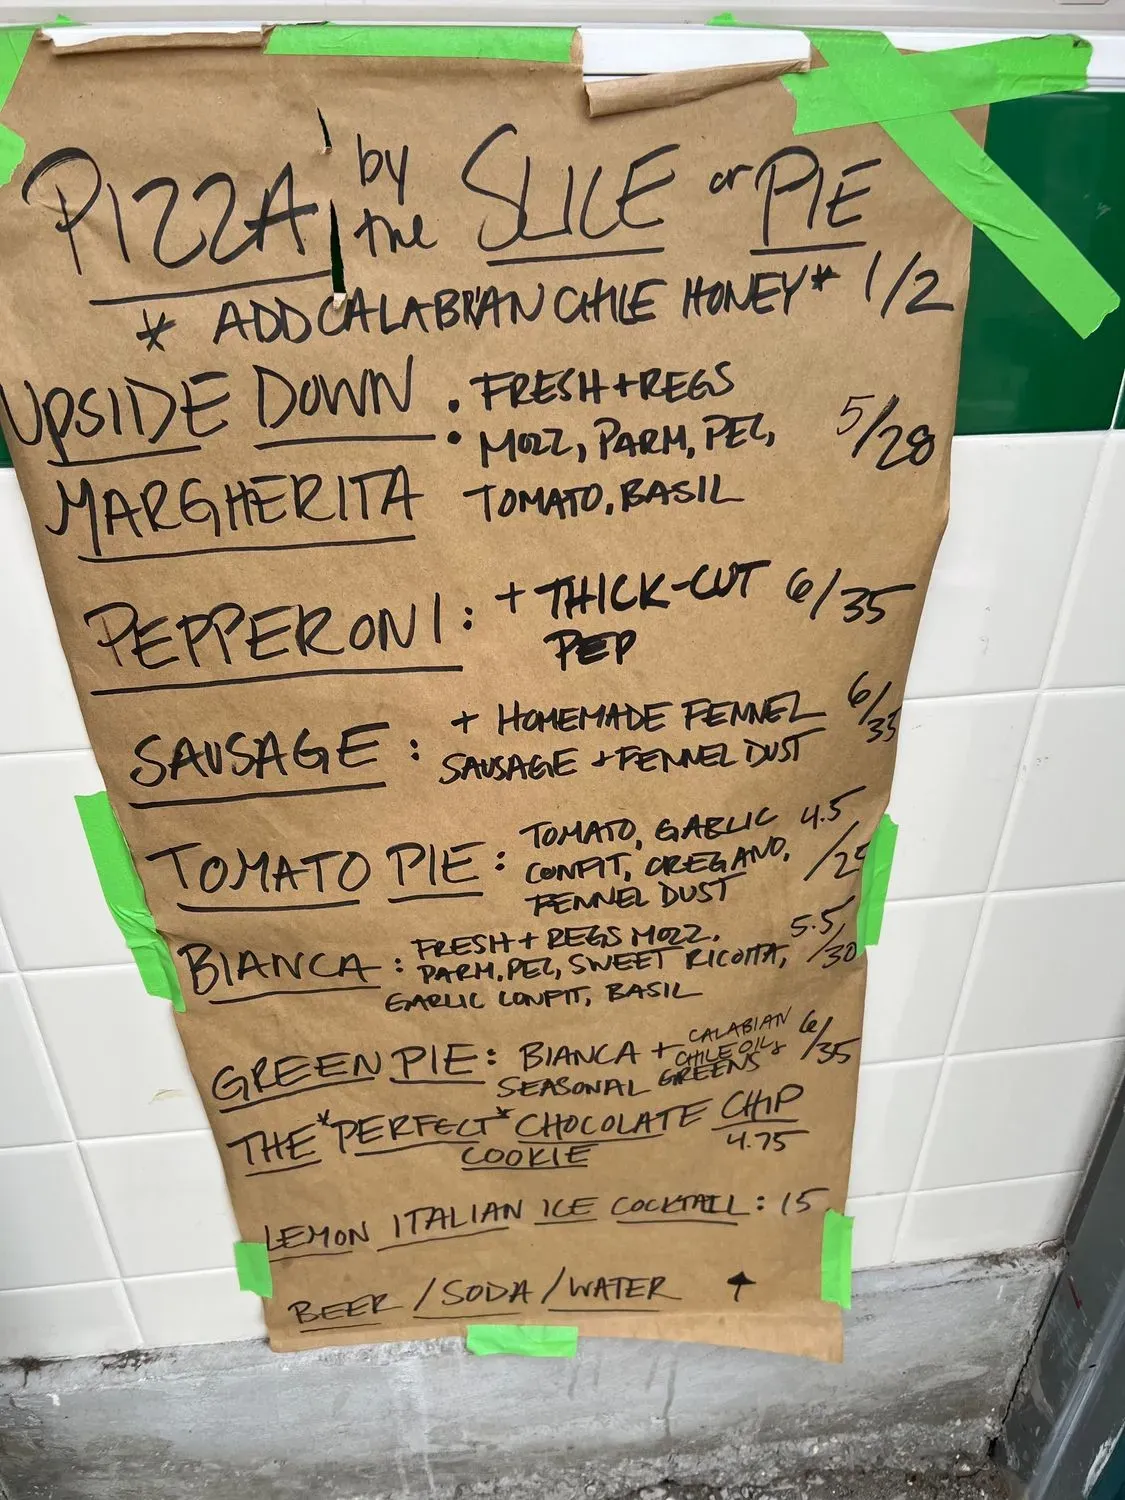 PIZZA by the SLICE or PIE
* ADD CALABRIAN CHILE HONEY* 1/2
UPSIDE DOWN : FRESH + REGS
MOZZ, PARM, PEC, 5/28
MARGHERITA TOMATO, BASIL
PEPPERONI: + THICK-CUT 6/35
PEP
SAUSAGE: + HOMEMADE FENNEL 6/35
SAUSAGE + FENNEL DUST
TOMATO PIE: TOMATO, GARLIC 4.5
CONFIT, OREGANO, /25
FENNEL DUST
BIANCA: FRESH + REGS MOZZ, 5.5
PARM, PEC, SWEET RICOTTA, /30
GARLIC CONFIT, BASIL
GREEN PIE: BIANCA + CALABIAN 6/35
CHILE OIL &
SEASONAL GREENS
THE *PERFECT* CHOCOLATE CHIP
COOKIE 4.75
LEMON ITALIAN ICE COCKTAIL: 15
BEER / SODA / WATER ↑